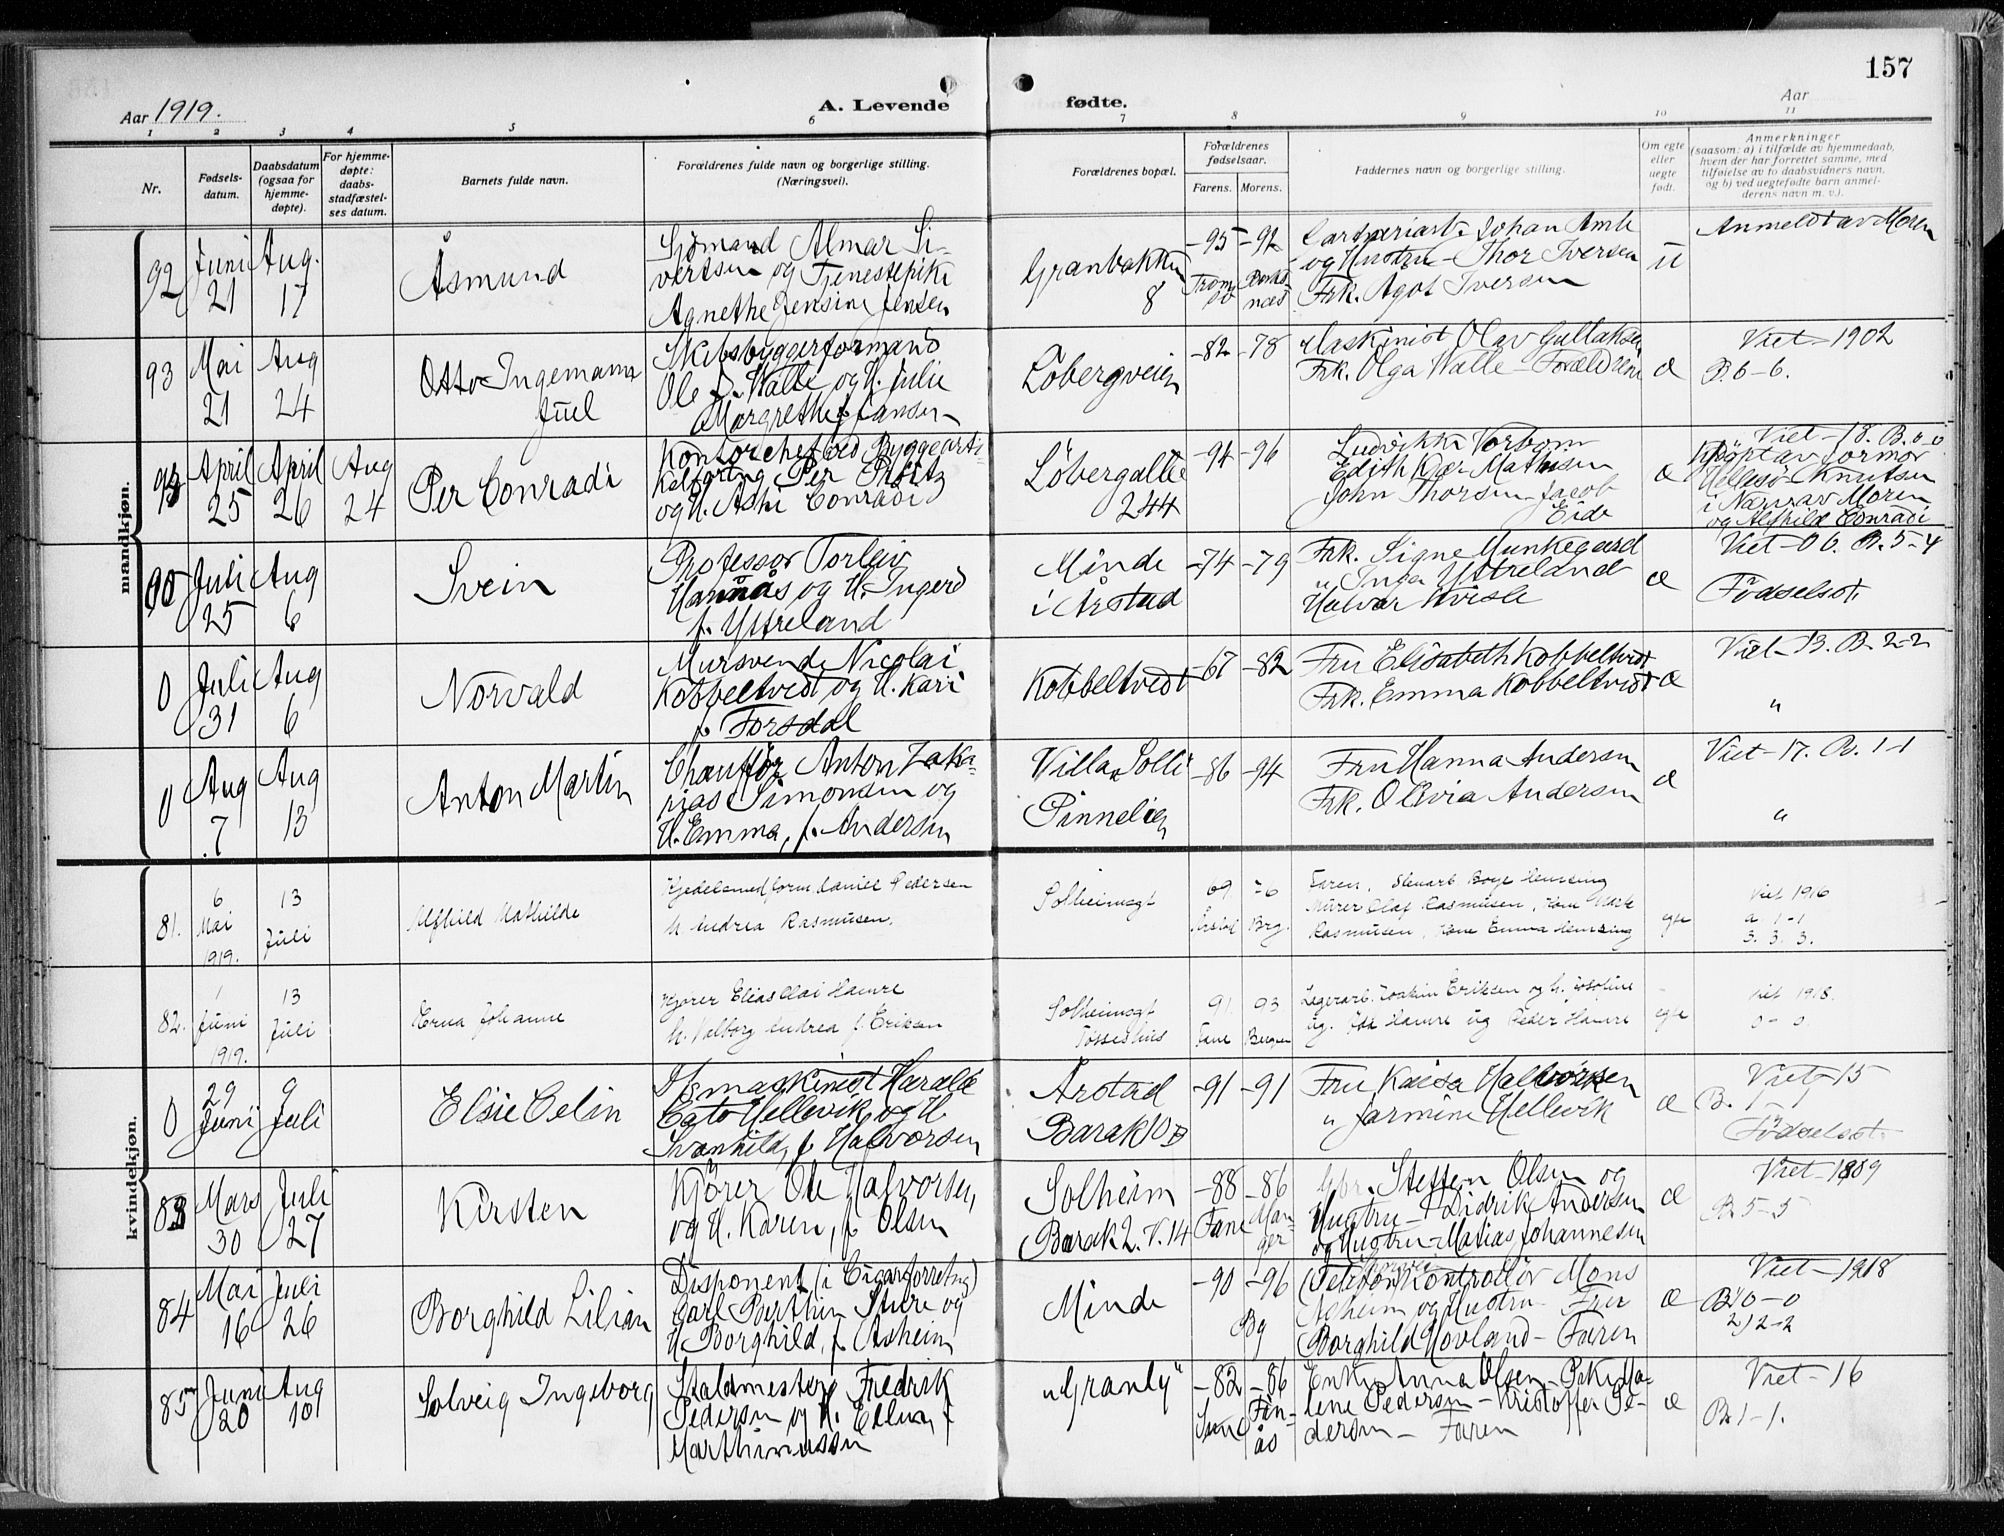 157
Aar 1919.
A. Levende fødte.
Aar
1 2 3 4 5 6 7 8 9 10 11
Nr.
Fødsels-
datum.
Daabsdatum
(ogsaa for
hjemme-
døpte).
For hjemme-
døpte:
daabs-
stadfæstel-
ses datum.
Barnets fulde navn.
Forældrenes fulde navn og borgerlige stilling.
(Næringsvei).
Forældrenes bopæl.
Forældrenes
fødselsaar.
Farens. Morens.
Faddernes navn og borgerlige stilling.
Om egte
eller
uegte
født.
Anmerkninger
(saasom: a) i tilfælde av hjemmedaab,
hvem der har forrettet samme, med
tilføielse av to daabsvidners navn,
og b) ved uegtefødte barn anmel-
derens navn m. v.).
mandkjøn.
92
Juni
21
Aug.
17
Åsmund
Sjömand Almar Si-
vertsen og Tjenestepike
Agnethe Jensine Jensen
Granbakken
8
-95 -92
Johan
og Hustru - Thor Iversen
Frk. Agot Iversen
u
Anmeldt av Moren
93
Mai
21
Aug
24
Otto Ingemann
Juel
Skibsbyggerformand
Ole Walle og H. Julie
Margrethe f. Jansen
Löbergveien
-82 -78
Maskinist Olav Gullaksen
Frk. Olga Walle - Forældrene
æ
Viet - 1902
B. 6-6.
94
April
25
April
26
Aug
24
Per Conradi
Kontorchef ved
Per
og H. Conradi
Löbergalle
244
-94 -96
Edith Mathisen
John Thorsen - Jacob
Eide
æ
Viet - 18. B. 0-0
Döpt av Jormor
Knutsen
Moren
og Alfhild Conradi
95
Juli
25
Aug
6
Svein
Professor Torleiv
Hannås og H. Ingerd
f. Ystreland
Minde
i Årstad
-74 -79
Frk. Signe Munkegaard
" Inga Ystreland
Halvar
æ
Viet - 06. B. 5-4
Födselsat.
0
Juli
31
Aug
6
Norvald
Mursvend Nicolai
Kobbeltvedt og H. Kari
f. Forsdal
Kobbeltvedt
-67 -82
Fru Elisabeth Kobbeltvedt
Frk. Emma Kobbeltvedt
æ
Viet - 13. B. 2-2
"
0
Aug
7
Aug
13
Anton Martin
Chauffør Anton Zaka-
rias Simonsen og
H. Emma, f. Andersen
Villa Solli
Pinnelien
-86 -94
Fru Hanna Andersen
Frk. Olivia Andersen
æ
Viet - 17. B. 1-1
"
kvindekjøn.
81.
6
Mai
1919.
13
Juli
Alfhild Mathilde
Kjedelsmedform. Daniel Pedersen
H. Andrea Rasmusen.
Solheimsgt
69 76
Årstad Brg.
Faren, Stuart Boye Hemsing
Murer Olaf Rasmusen,
Rasmusen, Kone Emma Hemsing
egte
Viet 1916
a 1-1
3. 3. 3.
82.
1
Juni
1919.
13
Juli
Erna Johanne
Kjører Elias Olai Hamre
H. Valborg Andrea f. Eriksen
Solheimsgt
91. 93
Fane Bergen
Lagerarb. Joakim Eriksen og H. Josefine
Ug. Ida Hamre Ug Peder Hamre
egte
Viet 1918.
0-0.
0
29
Juni
9
Juli
Elsie Celin
Harald
Cato Hellevik og H
Svanhild, f. Halvorsen
Årstad
Barak 10 B
-91 -91
Fru Kaisa Halvorsen
" Jarmine Hellevik
æ
Viet - 15
B. 1-1
Födselsat.
83
Mars
30
Juli
27
Kirsten
Kjører Ole Halvorsen,
og H. Karen, f. Olsen
Solheim
Barak 2. V. 14
-88 -86
Fane Man-
ger
Steffen Olsen og
Hustru - Didrik Andersen
og Hustru - Matias Johannesen
æ
Viet - 1909
B. 5-5
84
Mai
16
Juli
26
Borghild Lilian
Disponent (i Cigarforretng)
Carl Berthin Sture og
H. Borghild, f. Asheim
Minde
-90 -96
Bg
Telefonkontrollör Mons
Asheim og Hustru - Fru
Borghild Hovland - Faren
æ
Viet - 1918
B. 0-0
2) 2-2
85
Juni
20
Aug
10
Solveig Ingeborg
Staldmester Fredrik
Pedersen og H. Ellen, f.
Marthinussen
"Granly"
-82 -86
Fin-
ås
Enke Anna Olsen -
lene Pedersen - Kristoffer Pe-
dersen - Faren
æ
Viet - 16
B. 1-1.